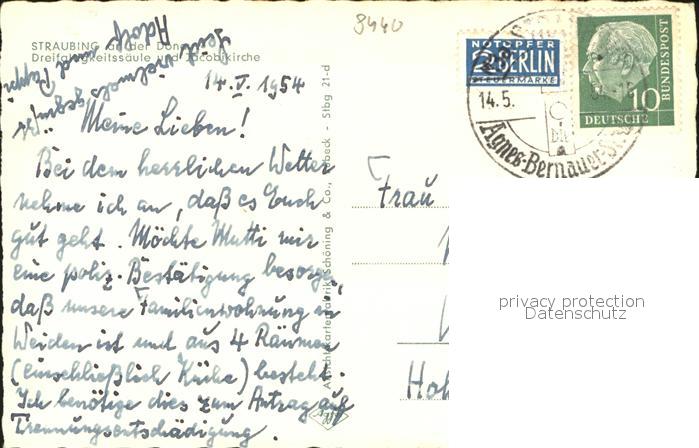 8440
STRAUBING an der Donau
Dreifaltigkeitssäule und Jacobikirche
14. V. 1954
Meine Lieben!
Bei dem herrlichen Wetter
nehme ich an, daß es Euch
gut geht. Möchte Mutti mir
eine poliz. Bestätigung besorgen,
daß unsere Familienwohnung in
Weiden ist und aus 4 Räumen
(einschließlich Küche) besteht.
Ich benötige dies zum Antrag auf
Trennungsentschädigung.
Seid vielmals gegrüßt
Adolf und Pappi
Ansichtskartenfabrik Schöning & Co., Lübeck - Stbg 21-d
NOTOPFER
2 BERLIN
STEUERMARKE
14.5.
Agnes-Bernauer-St
10
DEUTSCHE
BUNDESPOST
Frau
Hoh
privacy protection
Datenschutz